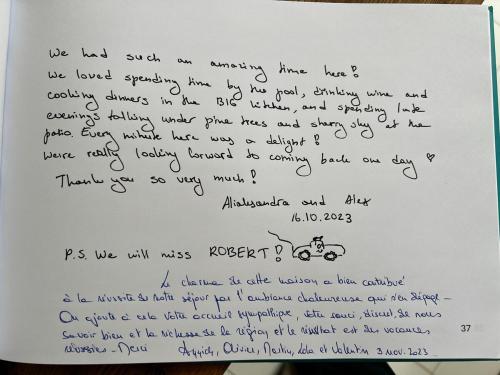 We had such an amazing time here!
We loved spending time by the pool, drinking wine and
cooking dinners in the BIG kitchen, and spending late
evenings talking under pine trees and starry sky at the
patio. Every minute here was a delight!
We're really looking forward to coming back one day ♡
Thank you so very much!
Aliaksandra and Alex
16.10.2023
P.S. We will miss ROBERT!
Le charme de cette maison a bien contribué
à la réussite de notre séjour par l'ambiance chaleureuse qui s'en dégage -
On ajoute à cela votre accueil sympathique, votre souci, discret, de nous
savoir bien et la richesse de la région et le résultat est des vacances
réussies - Merci Olivier, Martin, Lola et Valentin 3 nov. 2023
37